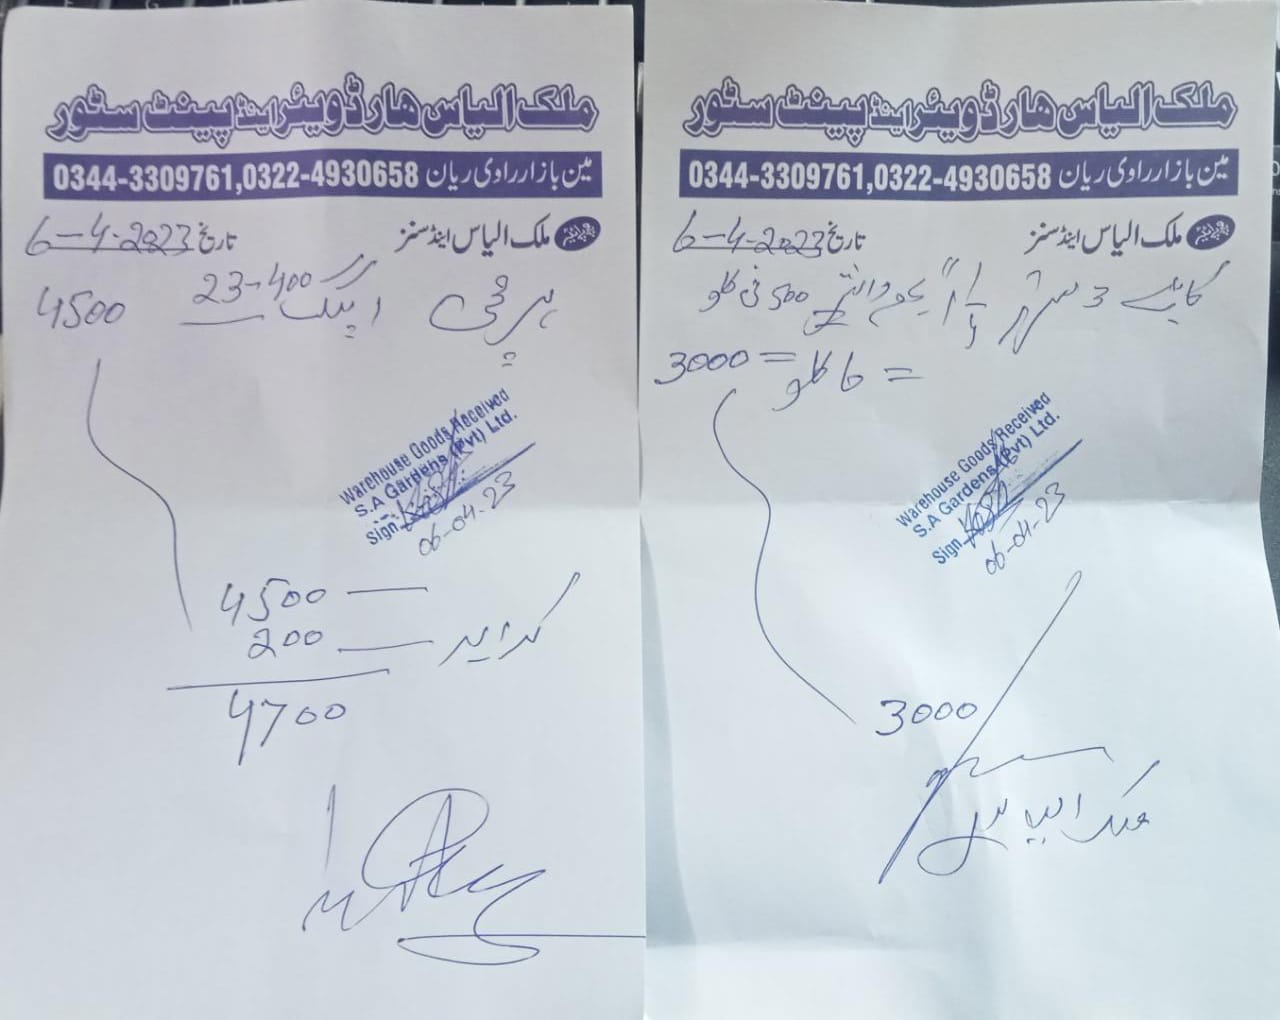 ملک الیاس ہارڈویئر اینڈ پینٹ سٹور
مین بازار راوی ریان 0344-3309761,0322-4930658
ملک الیاس اینڈ سنز
تاریخ 6-4-2023
23-400
4500
Warehouse Goods Received
S.A Gardens (Pvt) Ltd.
Sign
06-04-23
4500
200 کرایہ
4700
ملک الیاس ہارڈویئر اینڈ پینٹ سٹور
مین بازار راوی ریان 0344-3309761,0322-4930658
ملک الیاس اینڈ سنز
تاریخ 6-4-2023
3 500 فی کلو
= 6 کلو = 3000
Warehouse Goods Received
S.A Gardens (Pvt) Ltd.
Sign
06-04-23
3000
ملک الیاس